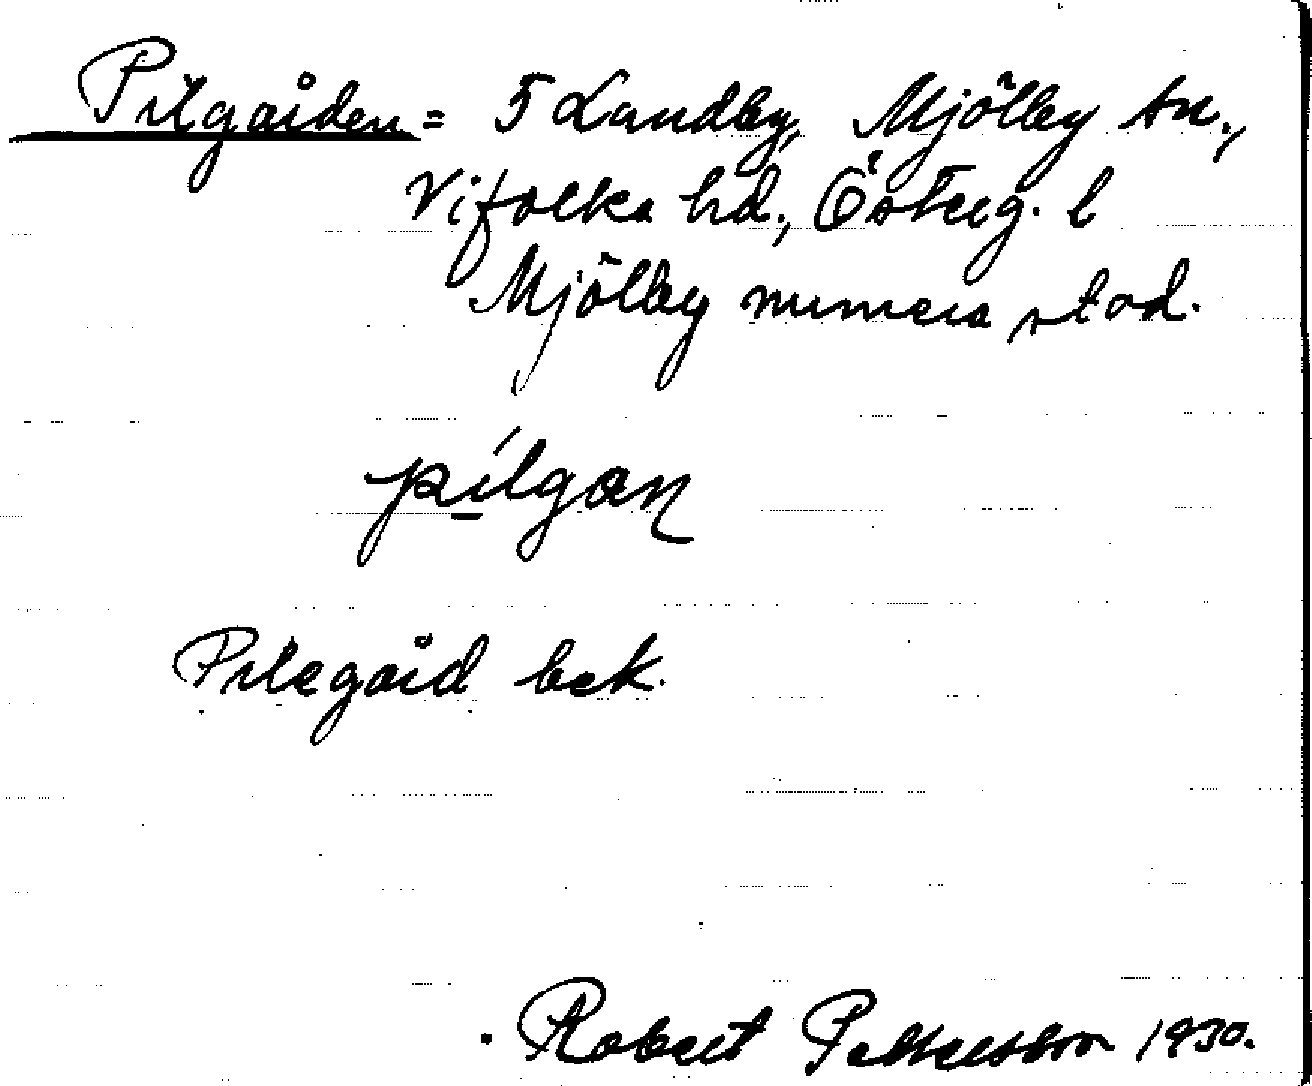 Pilgården = 5 Lundby, Mjölby sn.,
Vifolka hd., Österg. l
Mjölby numera stad.
pílgan
Pilegård bek.
Robert Pettersson 1930.